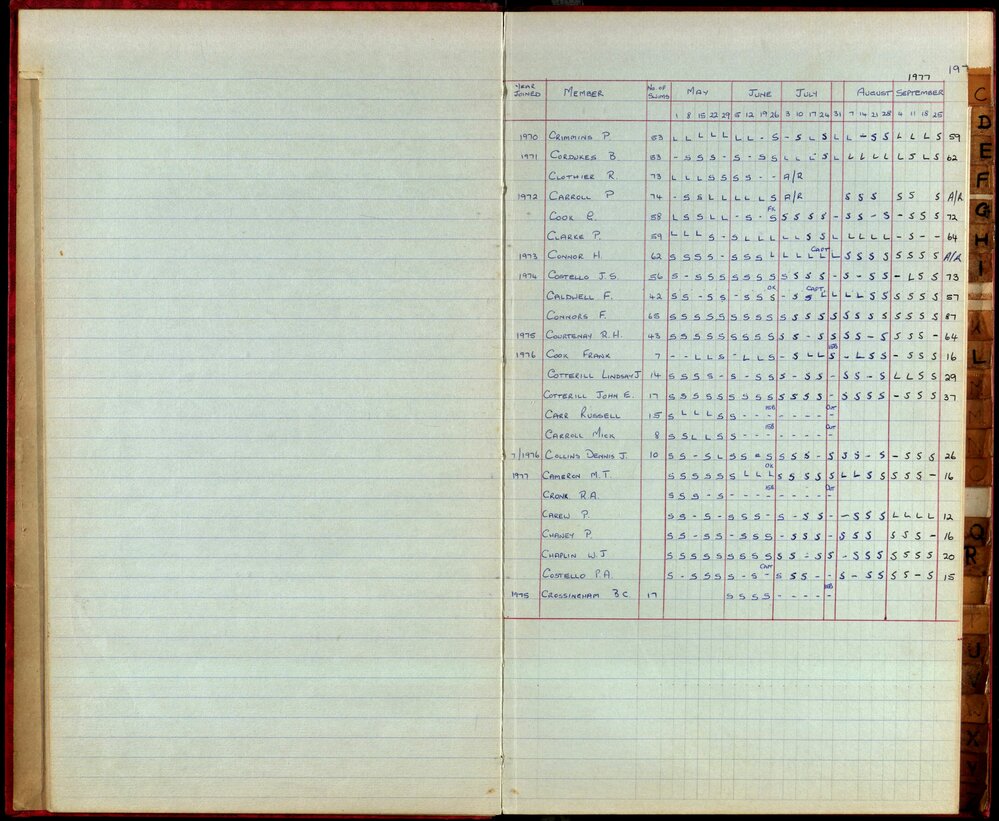 197
1977
YEAR JOINED MEMBER No. OF SWIMS MAY JUNE JULY AUGUST SEPTEMBER
1 8 15 22 29 5 12 19 26 3 10 17 24 31 7 14 21 28 4 11 18 25
1970 CRIMMINS P. 53 L L L L L L L - S - S L S L L - S S L L L S 59
1971 CORDUKES B. 53 - S S S - S - S S L L L S L L L L L L S L S 62
CLOTHIER R. 73 L L L S S S S - - A/R
1972 CARROLL P 74 - S S L L L L L S A/R S S S S S S A/R
FX
COOK G. 58 L S S L L - S - S S S S S - S S - S - S S S 72
CLARKE P. 59 L L L S - S L L L L L S S L L L L L - S - - 64
CAPT
1973 CONNOR H. 62 S S S S - S S S L L L L L L S S S S S S S S A/R
1974 COSTELLO J.S. 56 S - S S S S S S S S S S S - S - S S - L S S 73
OK CAPT
CALDWELL F. 42 S S - S S - S S S - S S L L L L S S S S S S 57
CONNORS F. 65 S S S S S S S S S S S S S S S S S S S S S S 87
1975 COURTENAY R.H. 43 S S S S S S S S S S S - S S S S - S S S S - 64
ISB
1976 COOK FRANK 7 - - L L S - L L S - S L L S - L S S - S S S 16
COTTERILL LINDSAY J 14 S S S S - S - S S S - S S - S S - S L L S S 29
COTTERILL JOHN E. 17 S S S S S S S S S S S S S - S S S S - S S S 37
ISB OUT
CARR RUSSELL 15 S L L L S S - - - - - - - -
ISB OUT
CARROLL MICK 8 S S L L S S - - - - - - - -
7/1976 COLLINS DENNIS J. 10 S S - S L S S - S S S S - S S S - S - S S S 26
OK
1977 CAMERON M.T. S S S S S S L L L S S S S S L L S S S S S - 16
ISB OUT
CRONK R.A. S S S - S - - - - - - - - -
CAREW P. S S - S - S S S - S - S S - - S S S L L L L 12
CHANEY P. S S - S S - S S S - S S S - S S S S S S - 16
CHAPLIN W.J S S S S S S S S S S S - S S - S S S S S S S 20
CAPT
COSTELLO P.A. S - S S S S - S - S S S - - S - S S S S - S 15
ISB
1975 CROSSINGHAM B C. 17 S S S S - - - - -
C
D
E
F
G
H
I
K
L
M
N
O
Q
R
T
U
W
X
Y